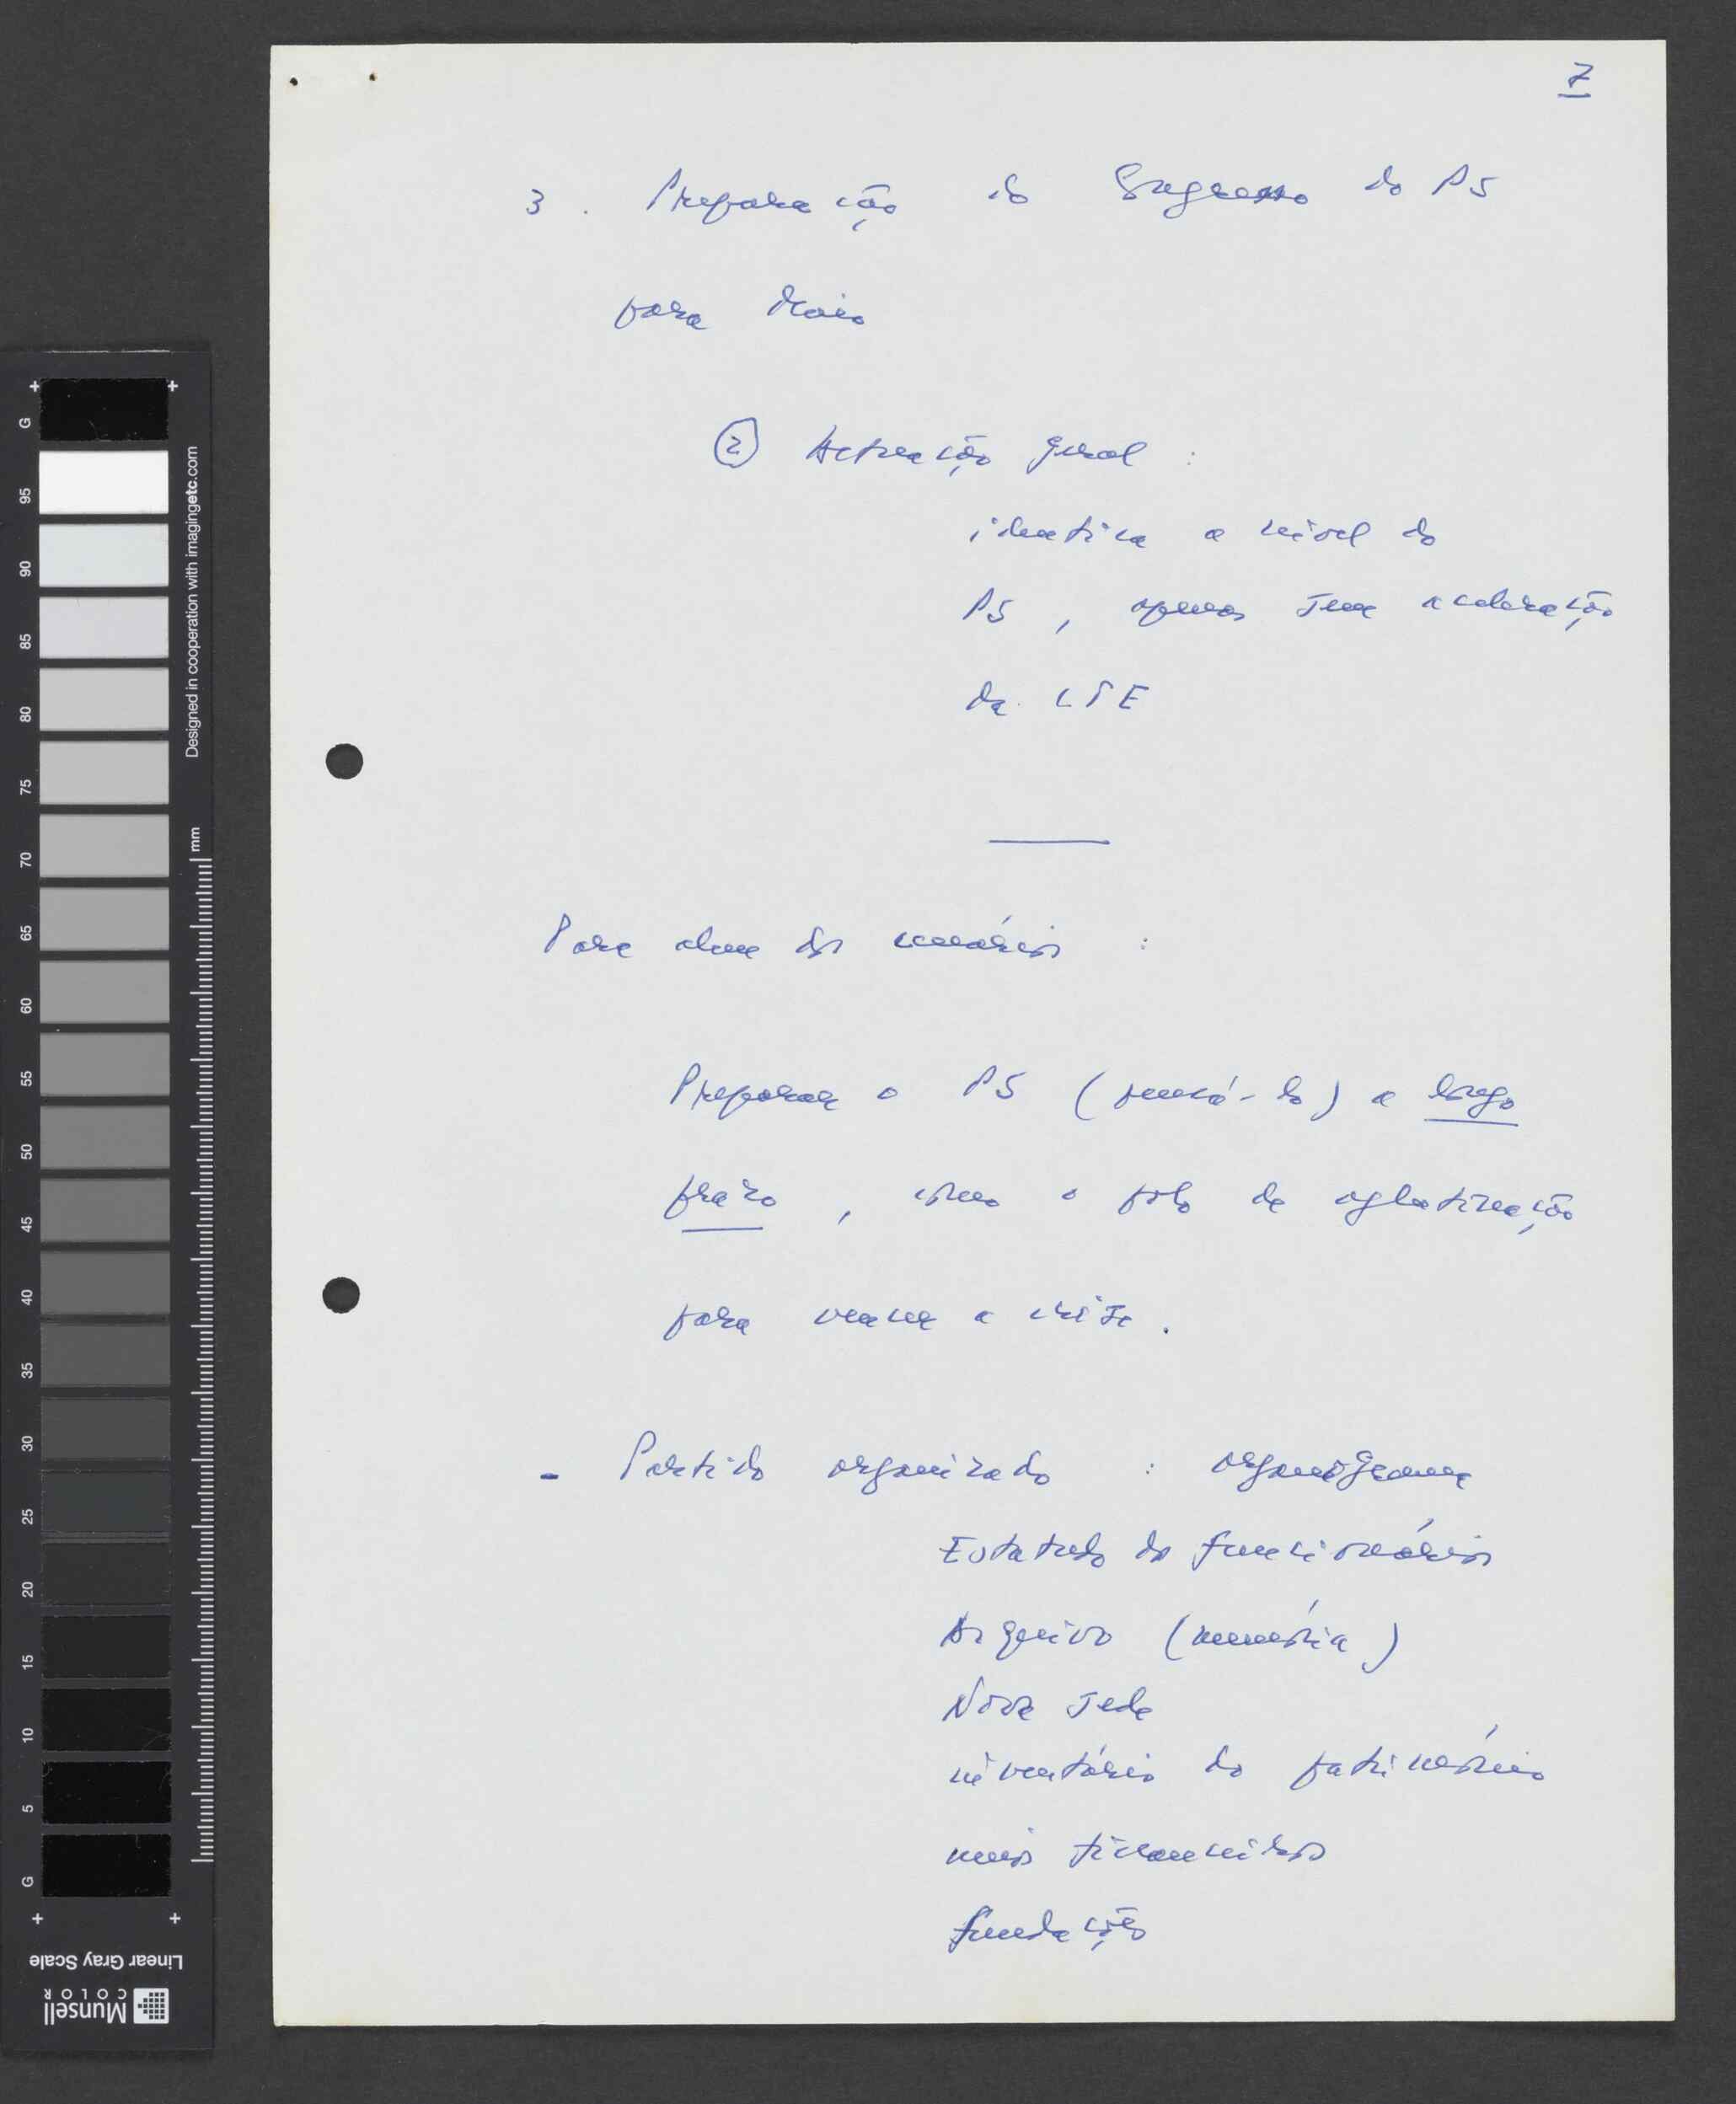 7
3. Preparação do Congresso do PS
para Maio
② Actuação geral :
identica a nivel do
PS, apenas sem aceleração
da
Para alem dos cenários :
Preparar o PS (pensá-lo) a longo
prazo, como o polo de aglutinação
para vencer a crise.
- Partido organizado : organigrama
Estatuto do funcionários
Arquivo (memória)
Nova sede
inventário do património
meios financeiros
fundações
G
95
90
85
80
75
70
65
60
55
50
45
40
35
30
25
20
15
10
5
G
Designed in cooperation with imagingetc.com
mm
Linear Gray Scale
Munsell
COLOR